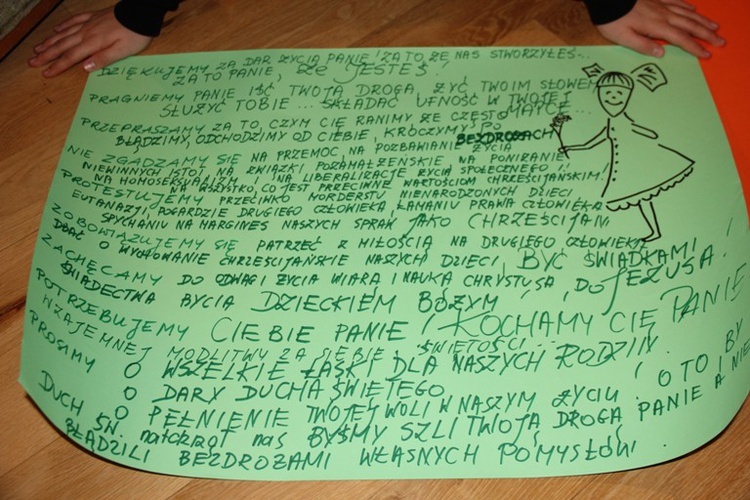 DZIĘKUJEMY ZA DAR ŻYCIA PANIE! ZA TO ŻE NAS STWORZYŁEŚ...
ZA TO PANIE, ŻE JESTEŚ!
PRAGNIEMY PANIE IŚĆ TWOJĄ DROGĄ, ŻYĆ TWOIM SŁOWEM
SŁUŻYĆ TOBIE ... SKŁADAĆ UFNOŚĆ W TWOJEJ
MATCE...
PRZEPRASZAMY ZA TO, CZYM CIĘ RANIMY ŻE CZĘSTO
BŁĄDZIMY, ODCHODZIMY OD CIEBIE, KROCZYMY PO
BEZDROŻACH
NIE ZGADZAMY SIĘ NA PRZEMOC, NA POZBAWIANIE ŻYCIA
NIEWINNYCH ISTOT, NA ZWIĄZKI POZAMAŁŻEŃSKIE, NA PONIŻANIE
NA HOMOSEKSUALIZM, NA LIBERALIZACJĘ ŻYCIA SPOŁECZNEGO I
NA WSZYSTKO, CO JEST PRZECIWNE WARTOŚCIOM CHRZEŚCIJAŃSKIM!
PROTESTUJEMY PRZECIWKO MORDERSTWU NIENARODZONYCH DZIECI
EUTANAZJI, POGARDZIE DRUGIEGO CZŁOWIEKA, ŁAMANIU PRAWA CZŁOWIEKA
SPYCHANIU NA MARGINES NASZYCH SPRAW JAKO CHRZEŚCIJAN
ZOBOWIĄZUJEMY SIĘ PATRZEĆ Z MIŁOŚCIĄ NA DRUGIEGO CZŁOWIEKA
DBAĆ O WYCHOWANIE CHRZEŚCIJAŃSKIE NASZYCH DZIECI, BYĆ ŚWIADKAMI
JEZUSA!
ZACHĘCAMY DO ODWAGI ŻYCIA WIARĄ I NAUKĄ CHRYSTUSA, DO
ŚWIADECTWA BYCIA DZIECKIEM BOŻYM!
POTRZEBUJEMY CIEBIE PANIE! KOCHAMY CIĘ PANIE
WZAJEMNEJ MODLITWY ZA SIEBIE, ŚWIĘTOŚCI...
PROSIMY O WSZELKIE ŁASKI DLA NASZYCH RODZIN
O DARY DUCHA ŚWIĘTEGO
O PEŁNIENIE TWOJEJ WOLI W NASZYM ŻYCIU. O TO BY
DUCH ŚW. natchnął nas BYŚMY SZLI TWOJĄ DROGĄ PANIE A NIE
BŁĄDZILI BEZDROŻAMI WŁASNYCH POMYSŁÓW.